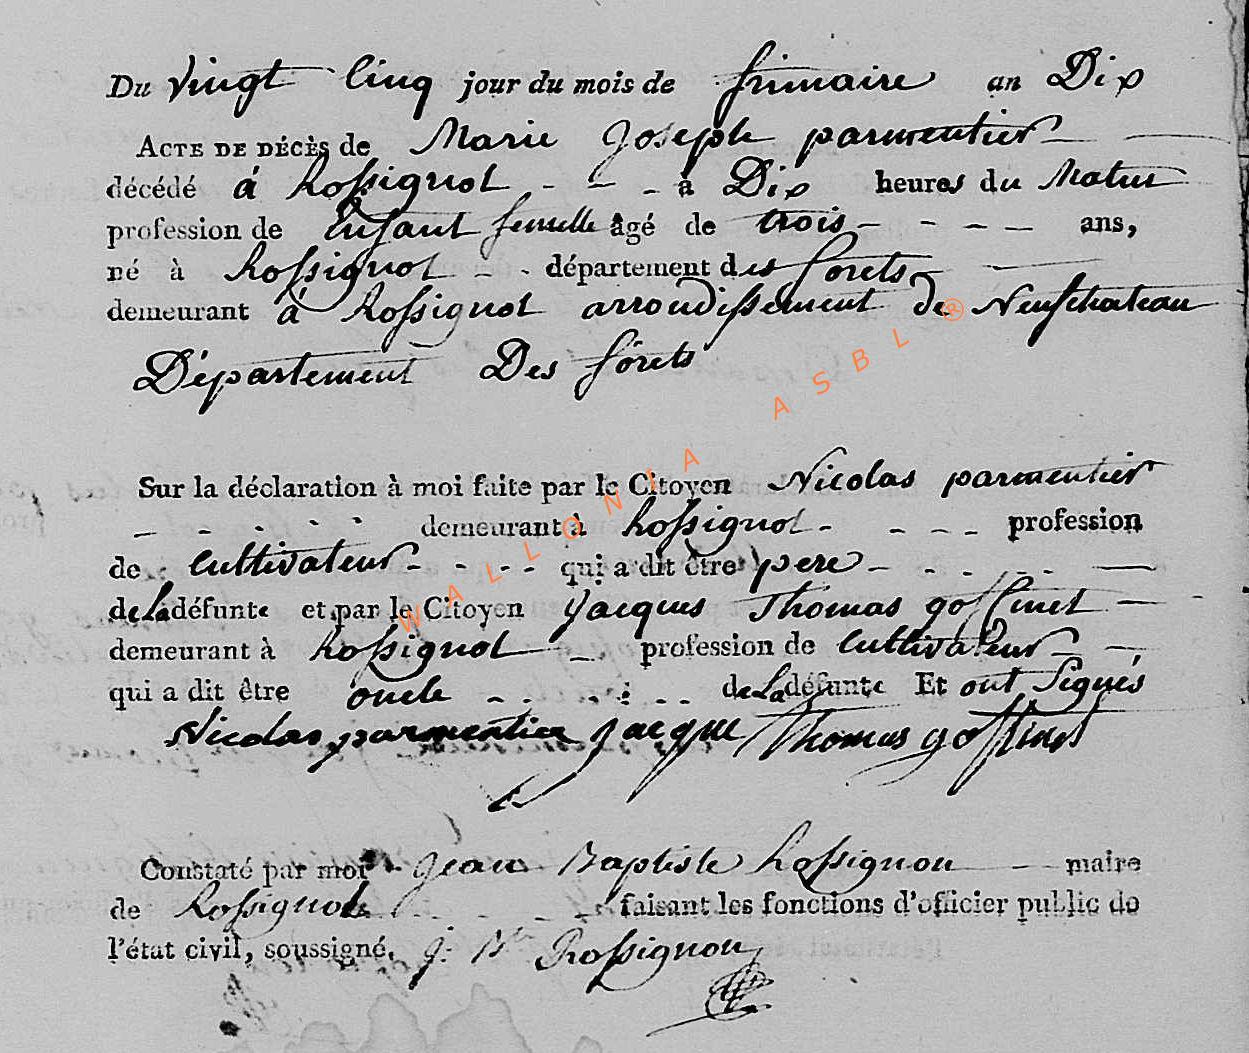 Du vingt Cinq jour du mois de frimaire an Dix
ACTE DE DÉCÈS de Marie Joseph parmentier
décédé á Rossignol - - - à Dix heures du Matin
profession de Enfant femelle âgé de trois - - - - ans,
né à Rossignol - - département des forets
demeurant á Rossignol arrondissement de Neufchateau
Département Des forêts
Sur la déclaration à moi faite par le Citoyen Nicolas parmentier
- - - - - demeurant à Rossignol - - - - profession
de cultivateur - - - - qui a dit être pere - - - - -
de la défunte et par le Citoyen Jacques Thomas goffinet -
demeurant à Rossignol - profession de cultivateur - -
qui a dit être oncle - - - - - de La défunte Et ont Signés
Nicolas parmentier jacque Thomas goffinet
Constaté par moi Jean Baptiste Rossignon - maire
de Rossignol - - - - faisant les fonctions d'officier public de
l'état civil, soussigné. j. Bte Rossignon
WALLONIA ASBL ®